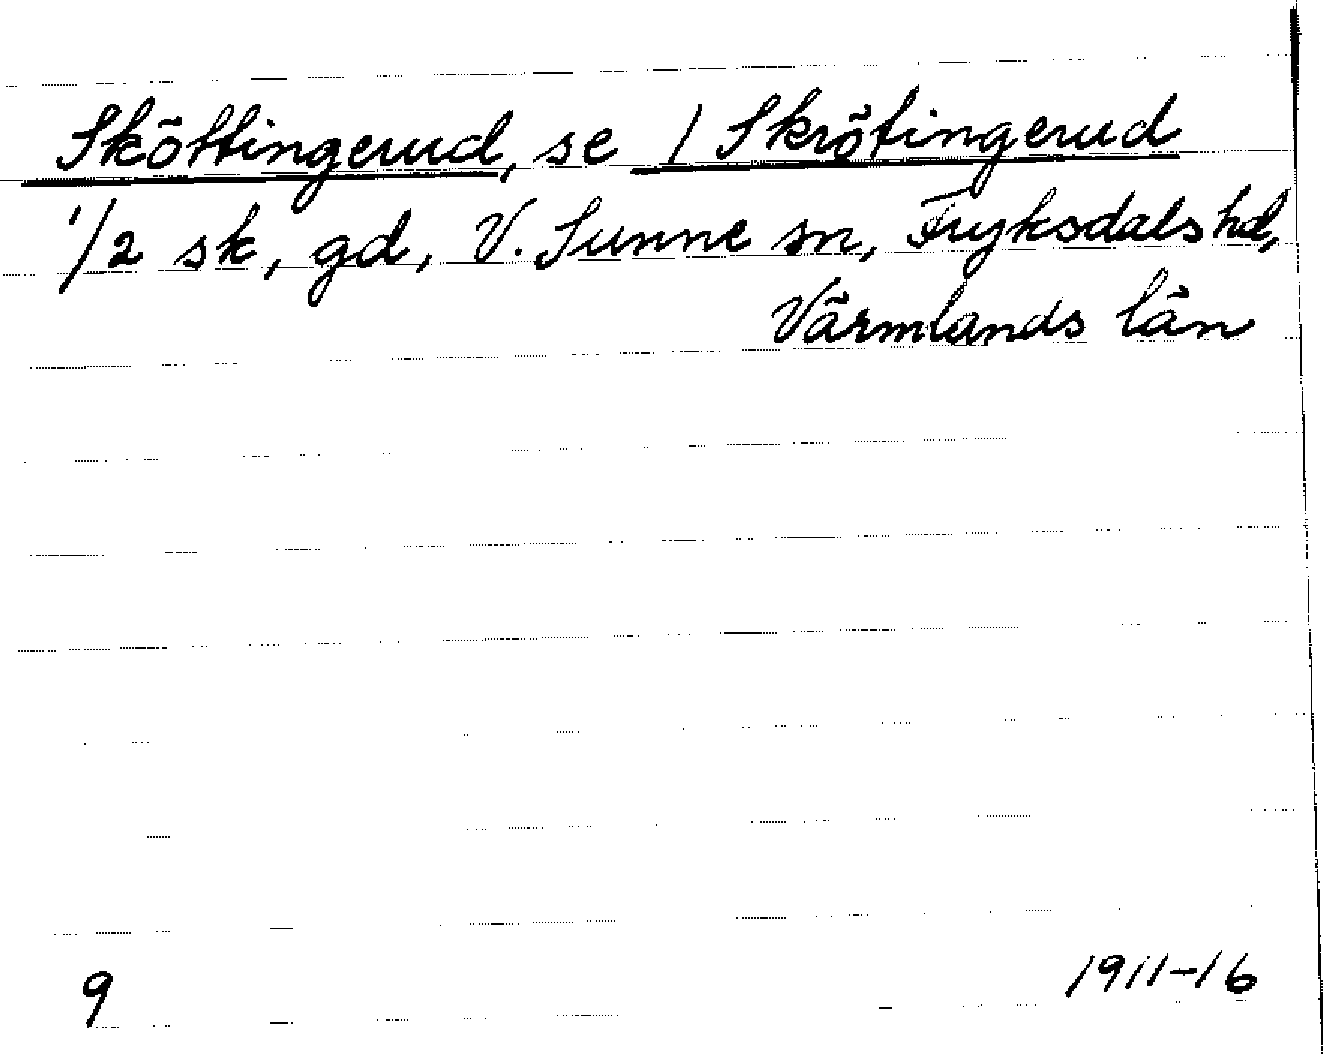 Sköttingerud, se 1 Skrötingerud
1/2 sk, gd, V. Sunne sn, Fryksdals hd,
Värmlands län
9
1911-16